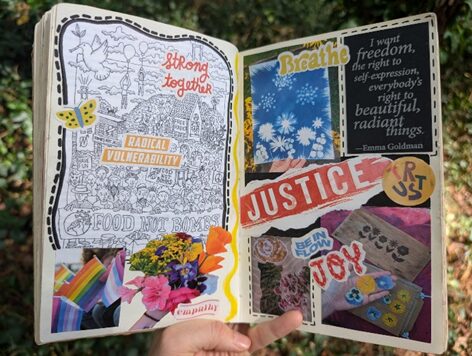 Strong
together
RADICAL
VULNERABILITY
FOOD NOT BOMBS
empathy
Breathe
I want
freedom,
the right to
self-expression,
everybody's
right to
beautiful,
radiant
things.
—Emma Goldman
JUSTICE
ARTS
BE IN
FLOW
JOY